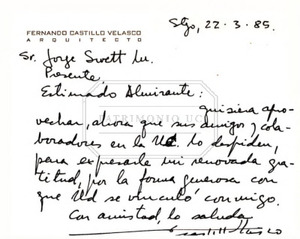 FERNANDO CASTILLO VELASCO
ARQUITECTO
Stgo, 22.3.85.
Sr. Jorge Swett M.
Presente
Estimado Almirante:
quisiera apro-
vechar, ahora que sus amigos y cola-
boradores en la UC. lo despiden,
para expresarle mi renovada gra-
titud, por la forma generosa con
que Ud se vinculó conmigo.
Con amistad, lo saluda
PATRIMONIO UC